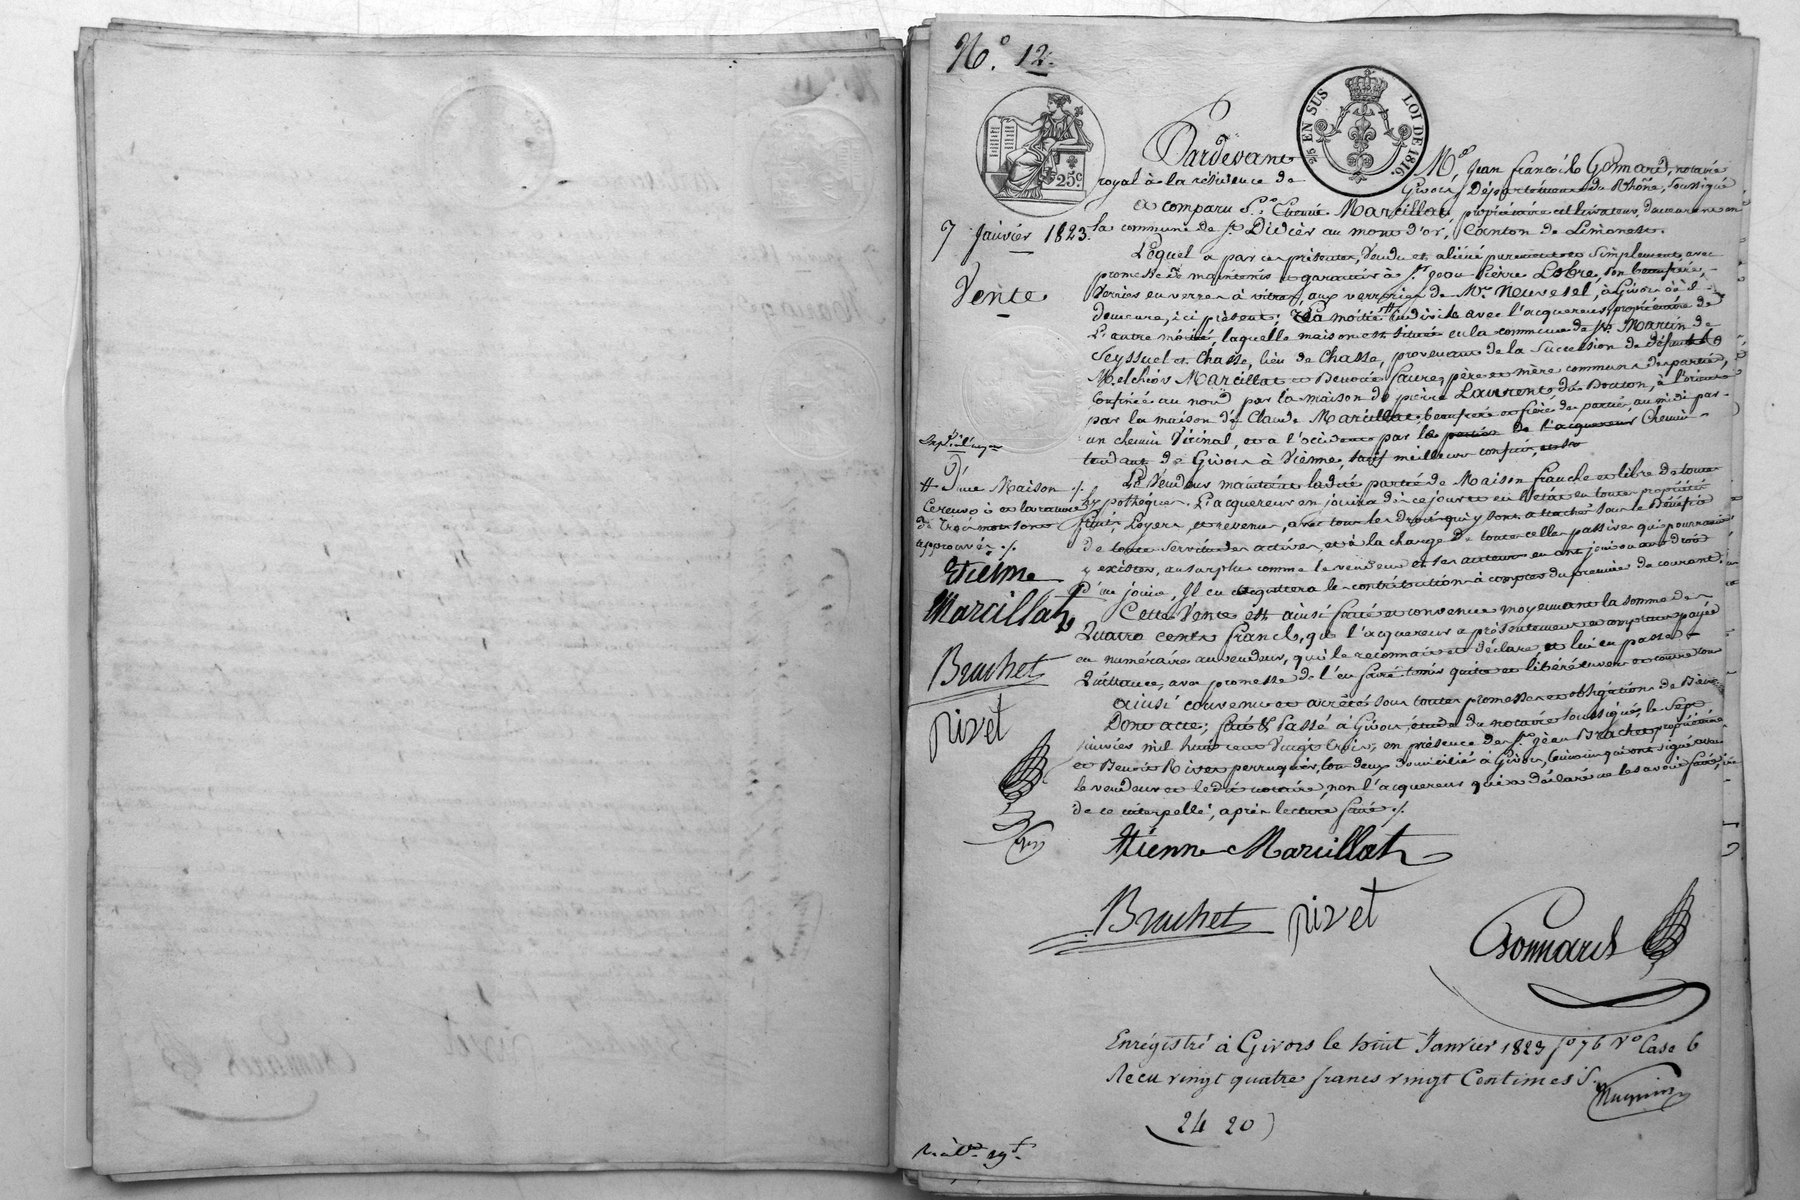 N.º 12.
25 EN SUS LOI DE 1816
25.c
7 Janvier 1823.
Vente
Pardevant Me. Jean françois Gonnard, notaire
royal à la résidence de Givors Département du Rhône, soussigné
a comparu Sr. Etienne Marcillat, propriétaire cultivateur, demeurant en
la commune de St. Didier au mont d'or, Canton de Limonest.
Lequel a par ces présentes, Vendu et aliéné purement et Simplement, avec
promesse de maintenir et garantir à Sr. Jean Pierre Lobre, son beaufrère,
Verrier en verres à vitres, aux verreries de Mr. Neuvesel, à Givors où il
demeure, ici présent; La moitié # indivise avec l'acquereur propriétaire de
L'autre moitié, laquelle maison est située en la commune de St. Martin de
Seyssuel et Chasse, lieu de Chasse, provenant de la Succession de défunts
Melchior Marcillat et Benoite faure, père et mère communs des parties,
Confinée au nord par la maison de pierre Laurent du Bouton, à l'orient
par la maison de Claude Marcillat, beaufrère et frère des parties, au midi par
un chemin Vicinal, et à l'occident par le parties de l'acquereur Chemin
tendant de Givors à Vienne, sauf meilleurs confins,
Le Vendeur maintient ladite partie de Maison franche et libre de toutes
hypothèques. L'acquereur en jouira dès ce jour et en l'état en toute propriété
fruits, Loyers, et revenus, avec tous les droits qui y sont attachés sous le Bénéfice
de toutes servitudes actives, et à la charge de toutes celles passives qui pourraient
y exister, au surplus comme le vendeur et ses auteurs en ont joui ou au droit
d'en jouir, Il en acquittera les contributions à compter du premier du courant.
Cette Vente est ainsi faite et convenue moyennant la somme de
Quatre cents francs, que l'acquereur a présentement et comptant payée
en numéraire au vendeur, qui le reconnait et déclare et lui en passe
Quittance, avec promesse de l'en faire tenir quitte et libéré envers et contre tous
ainsi convenu et arrêté sous toutes promesses et obligations de Biens.
Dont acte; fait & Passé à Givors, étude du notaire soussigné, le Sept
janvier mil huit cent Vingt trois; en présence des Srs. jean Brachet propriétaire
et Benoit Rivet perruquier, tous deux domiciliés à Givors, témoins qui ont signé avec
le vendeur et ledit notaire, non l'acquereur qui a déclaré ne les avoir faire,
de ce interpellé, après lecture faite ./.
# d'une Maison ./.
Ce renvoi et la rature
de trois mots sont
approuvés ./.
Etienne
Marcillat
Brachet
rivet
Etienne Marcillat
Brachet rivet
Gonnard
Enrégistré à Givors le huit Janvier 1823 fo 76 Vo Case 6
Recu vingt quatre francs vingt Centimes
24 20